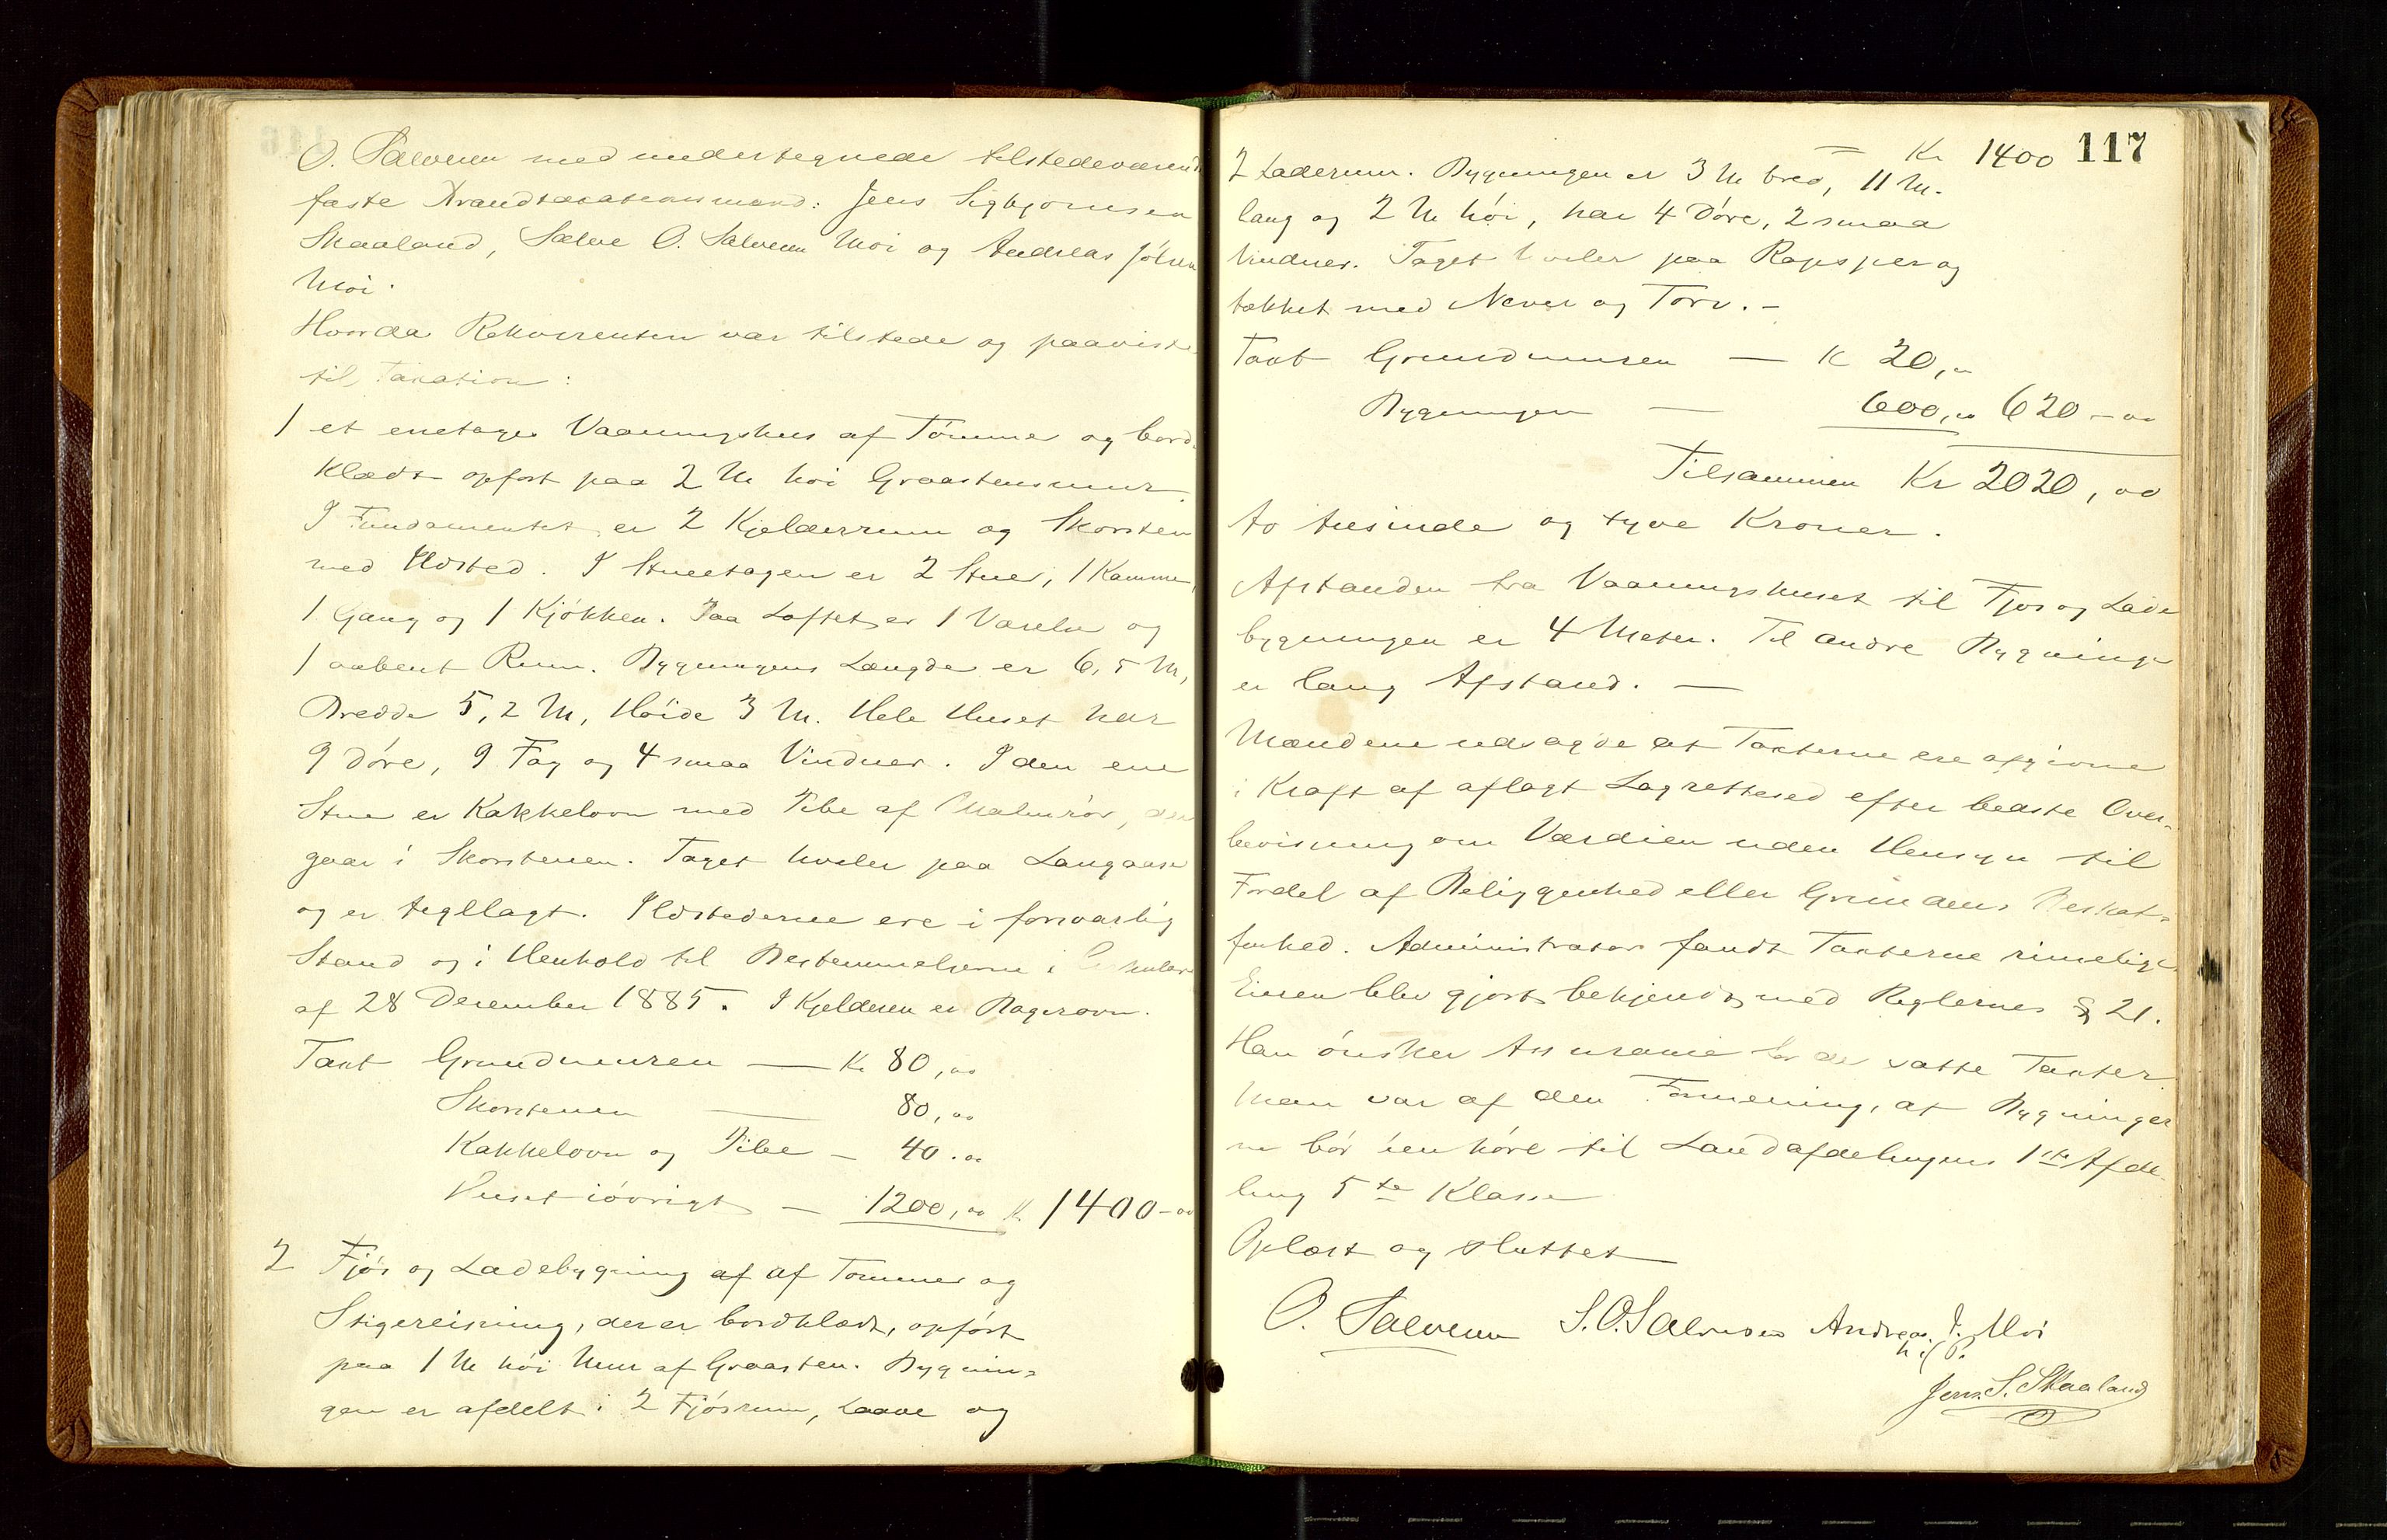 O. Salvesen med undertegnede tilstedeværende
faste Brandtaxationsmænd: Jens Sigbjørnsen
Skaaland, Salve O. Salvesen Moi og Andreas Johnsen
Moi.
Hvorda Rekvirenten var tilstede og paaviste
til Taxation:
1 et enetages Vaaningshus af Tømmer og bord-
klædt opført paa 2 M høi Graastensmur.
I Fundamentet er 2 Kjelderrum og Skorsten
med Ildsted. I Stueetagen er 2 Stuer, 1 Kammer,
1 Gang og 1 Kjøkken. Paa Loftet er 1 Værelse og
1 aabent Rum. Bygningens Længde er 6,5 M,
Bredde 5,2 M, Høide 3 M. Hele Huset har
9 Døre, 9 Fag og 4 smaa Vinduer. I den ene
Stue er Kakkelovn med Pibe af Malmrør, der
gaar i Skorstenen. Taget hviler paa Langaase
og er tegllagt. Ildstederne ere i forsvarlig
Stand og i Henhold til Bestemmelserne i
af 28 December 1885. I Kjelderen er Bagerovn.
Taxt Grundmuren — Kr 80,00
Skorstenen — 80,00
Kakkelovn og Pibe — 40.00
Huset iøvrigt — 1200,00 Kr 1400-00
2 Fjøs og Ladebygning af af Tømmer og
Stigereisning, der er bordklædt, opført
paa 1 M høi Mur af Graasten. Bygnin-
gen er afdelt i 2 Fjøsrum, Laave og
117
= Kr 1400
2 Laderum. Bygningen er 3 M bred, 11 M.
lang og 2 M høi, har 4 Døre, 2 smaa
Vinduer. Taget hviler paa og
tækket med Never og Torv. -
Taxt Grundmuren — K 20,00
Bygningen — 600,00 620-00
Tilsammen Kr 2020,00
to tusinde og tyve Kroner.
Afstanden fra Vaaningshuset til Fjøs og Lade
bygningen er 4 Meter. Til andre Bygninger
er lang Afstand. —
Mændene udsagde at Taxterne ere afgivne
i Kraft af aflagt Lagrettesed efter bedste Over-
bevisning om Værdien uden Hensyn til
Fordel af Beliggenhed eller Grundens Beskaf-
fenhed. Administrator fandt Taxterne rimelige.
Eieren blev gjort bekjendt med Reglernes § 21.
Han ønsker Assurance for de satte Taxter.
Man var af den Formening, at Bygninger
ne bør henhøre til Landafdelingens 1ste Afde-
ling 5te Klasse
Oplæst og sluttet
O. Salvesen S. O. Salvesen Andreas J. Moi
m. f. P.
Jens. S. Skaaland